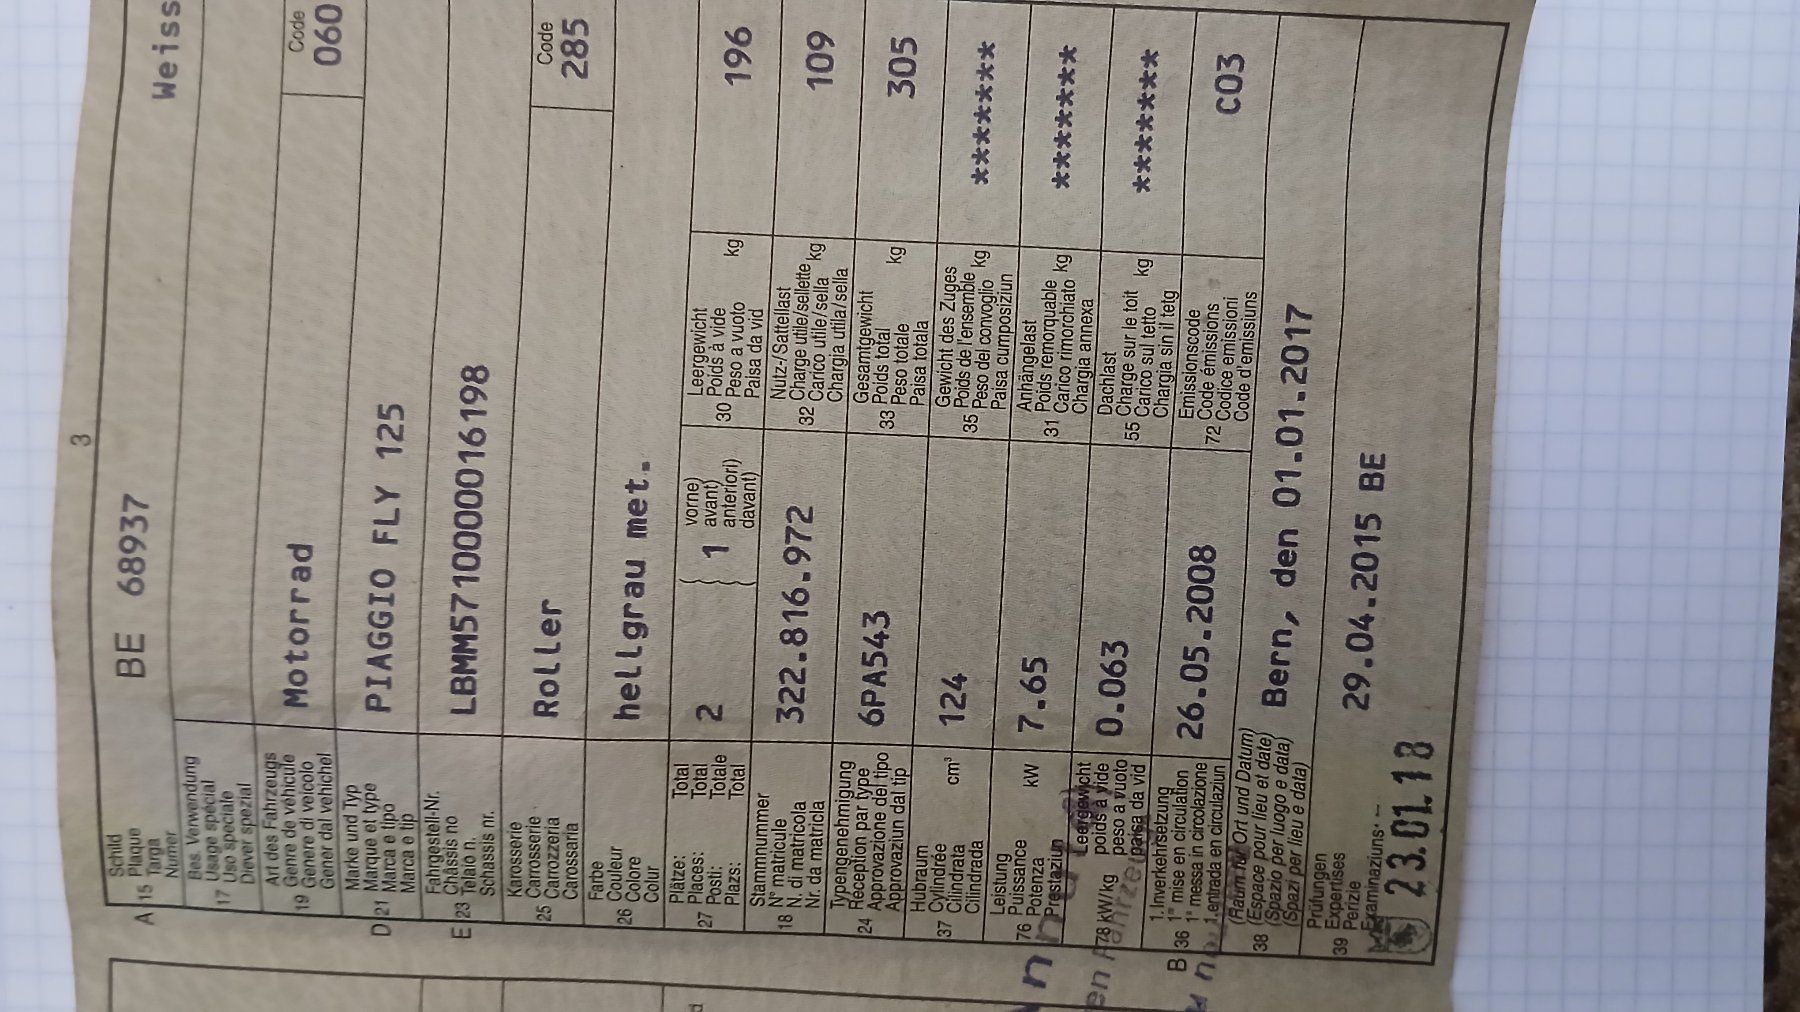 3
A 15 Schild
Plaque
Targa
Numer
BE 68937
Weiss
17 Bes. Verwendung
Usage spécial
Uso speciale
Diever spezial
19 Art des Fahrzeugs
Genre de véhicule
Genere di veicolo
Gener dal vehichel
Motorrad
Code
060
D 21 Marke und Typ
Marque et type
Marca e tipo
Marca e tip
PIAGGIO FLY 125
E 23 Fahrgestell-Nr.
Châssis no
Telaio n.
Schassis nr.
LBMM5710000016198
25 Karosserie
Carrosserie
Carrozzeria
Carossaria
Roller
Code
285
26 Farbe
Couleur
Colore
Colur
hellgrau met.
27 Plätze: Total
Places: Total
Posti: Totale
Plazs: Total
2
1
vorne)
avant)
anteriori)
davant)
30 Leergewicht
Poids à vide
Peso a vuoto
Paisa da vid
kg
196
18 Stammnummer
N° matricule
N. di matricola
Nr. da matricla
322.816.972
32 Nutz-/Sattellast
Charge utile/sellette
Carico utile/sella
Chargia utila/sella
kg
109
24 Typengenehmigung
Réception par type
Approvazione del tipo
Approvaziun dal tip
6PA543
33 Gesamtgewicht
Poids total
Peso totale
Paisa totala
kg
305
37 Hubraum
Cylindrée
Cilindrata
Cilindrada
cm³
124
35 Gewicht des Zuges
Poids de l'ensemble
Peso del convoglio
Paisa cumposiziun
kg
*******
76 Leistung
Puissance
Potenza
Prestaziun
kW
7.65
31 Anhängelast
Poids remorquable
Carico rimorchiato
Chargia annexa
kg
*******
78 kW/kg
Leergewicht
poids à vide
peso a vuoto
paisa da vid
0.063
55 Dachlast
Charge sur le toit
Carico sul tetto
Chargia sin il tetg
kg
*******
B 36 1.Inverkehrsetzung
1re mise en circulation
1a messa in circolazione
1.entrada en circulaziun
26.05.2008
72 Emissionscode
Code émissions
Codice emissioni
Code d'emissiuns
C03
38 (Raum für Ort und Datum)
(Espace pour lieu et date)
(Spazio per luogo e data)
(Spazi per lieu e data)
Bern, den 01.01.2017
39 Prüfungen
Expertises
Perizie
Examinaziuns
29.04.2015 BE
23.01.18